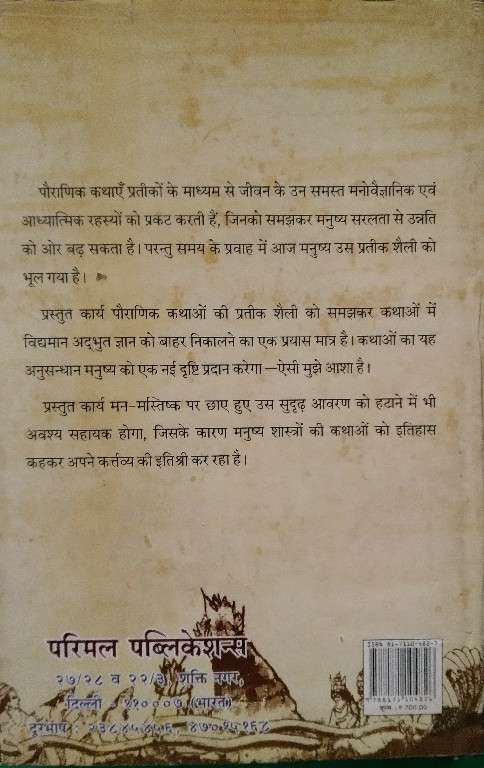 पौराणिक कथाएँ प्रतीकों के माध्यम से जीवन के उन समस्त मनोवैज्ञानिक एवं
आध्यात्मिक रहस्यों को प्रकट करती हैं, जिनको समझकर मनुष्य सरलता से उन्नति
की ओर बढ़ सकता है। परन्तु समय के प्रवाह में आज मनुष्य उस प्रतीक शैली को
भूल गया है।
प्रस्तुत कार्य पौराणिक कथाओं की प्रतीक शैली को समझकर कथाओं में
विद्यमान अद्भुत ज्ञान को बाहर निकालने का एक प्रयास मात्र है। कथाओं का यह
अनुसन्धान मनुष्य को एक नई दृष्टि प्रदान करेगा—ऐसी मुझे आशा है।
प्रस्तुत कार्य मन-मस्तिष्क पर छाए हुए उस सुदृढ़ आवरण को हटाने में भी
अवश्य सहायक होगा, जिसके कारण मनुष्य शास्त्रों की कथाओं को इतिहास
कहकर अपने कर्त्तव्य की इतिश्री कर रहा है।
परिमल पब्लिकेशन्स
२७/२८ व २२/३, शक्ति नगर,
दिल्ली ११०००७ (भारत)
दूरभाष :
ISBN